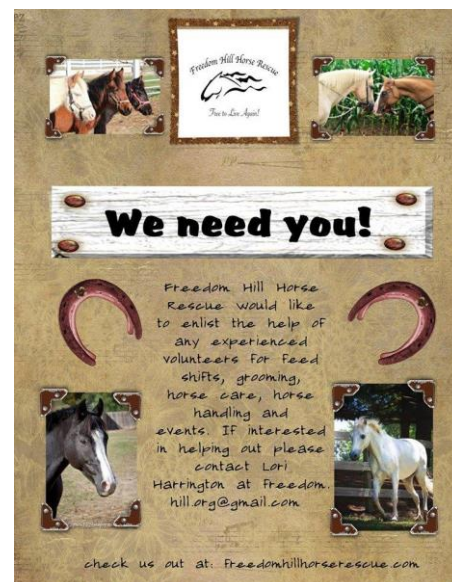 Freedom Hill Horse Rescue
Free to Live Again!
We need you!
Freedom Hill Horse
Rescue would like
to enlist the help of
any experienced
volunteers for feed
shifts, grooming,
horse care, horse
handling and
events. If interested
in helping out please
contact Lori
Harrington at freedom.
hill.org@gmail.com
check us out at: freedomhillhorserescue.com